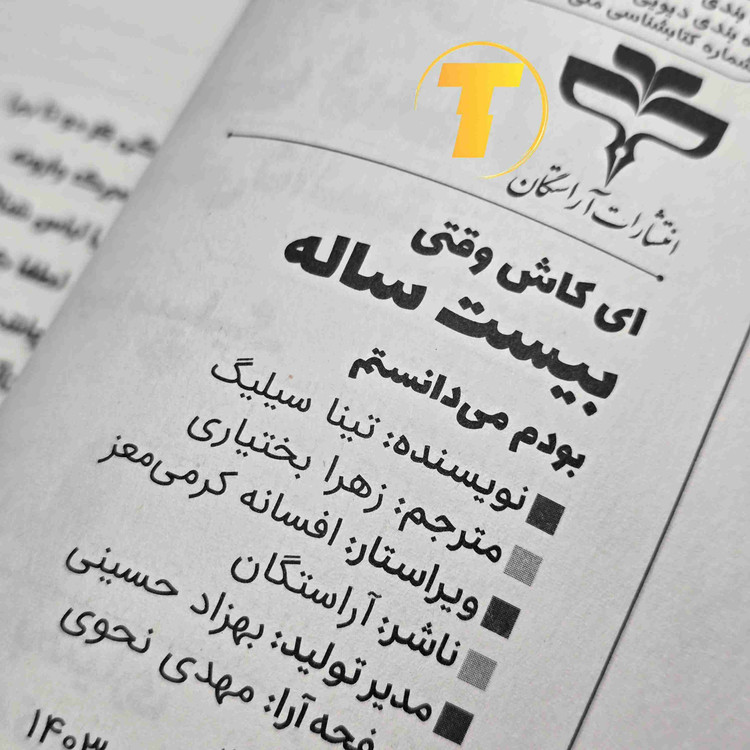 بندی
شماره کتابشناسی
T
انتشارات آراستگان
ای کاش وقتی
بیست ساله
بودم می‌دانستم
نویسنده: تینا سیلیگ
مترجم: زهرا بختیاری
ویراستار: افسانه کرمی‌معز
ناشر: آراستگان
مدیر تولید: بهزاد حسینی
فحه‌آرا: مهدی نحوی
۱۴۰۳